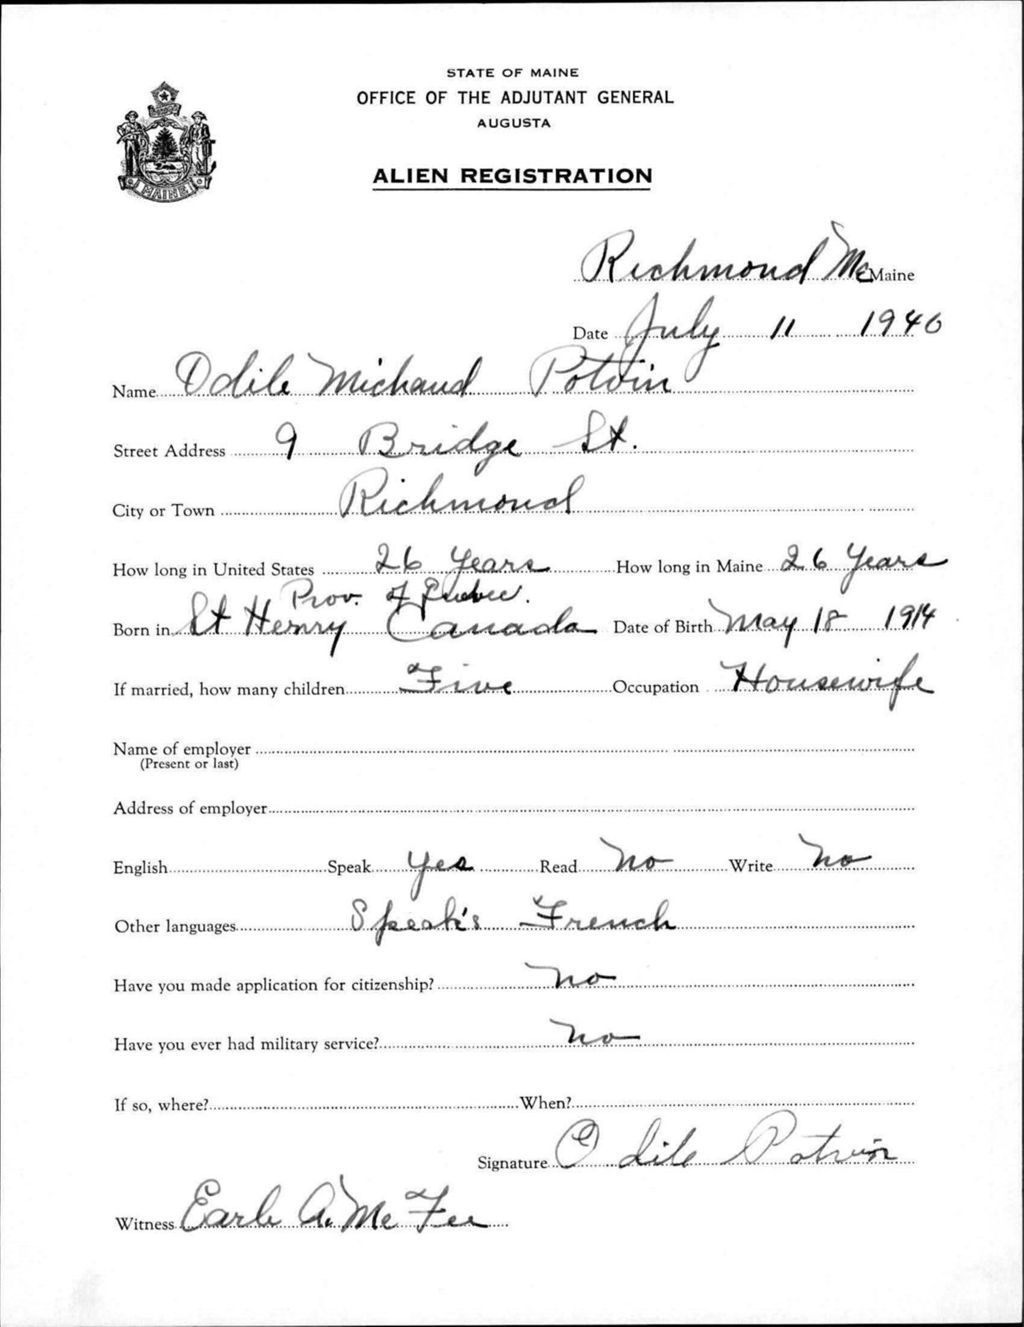 STATE OF MAINE
OFFICE OF THE ADJUTANT GENERAL
AUGUSTA
ALIEN REGISTRATION
MAINE
Richmond Me Maine
Date July 11 1940
Name Odile Michaud Potvin
Street Address 9 Bridge St.
City or Town Richmond
How long in United States 26 Years How long in Maine 26 Years
Prov. of Quebec.
Born in St Henry Canada Date of Birth May 18 1914
If married, how many children Five Occupation Housewife
Name of employer
(Present or last)
Address of employer
English Speak Yes Read No Write No
Other languages Speak's French
Have you made application for citizenship? No
Have you ever had military service? No
If so, where? When?
Signature Odile Potvin
Witness Earle A. McFee